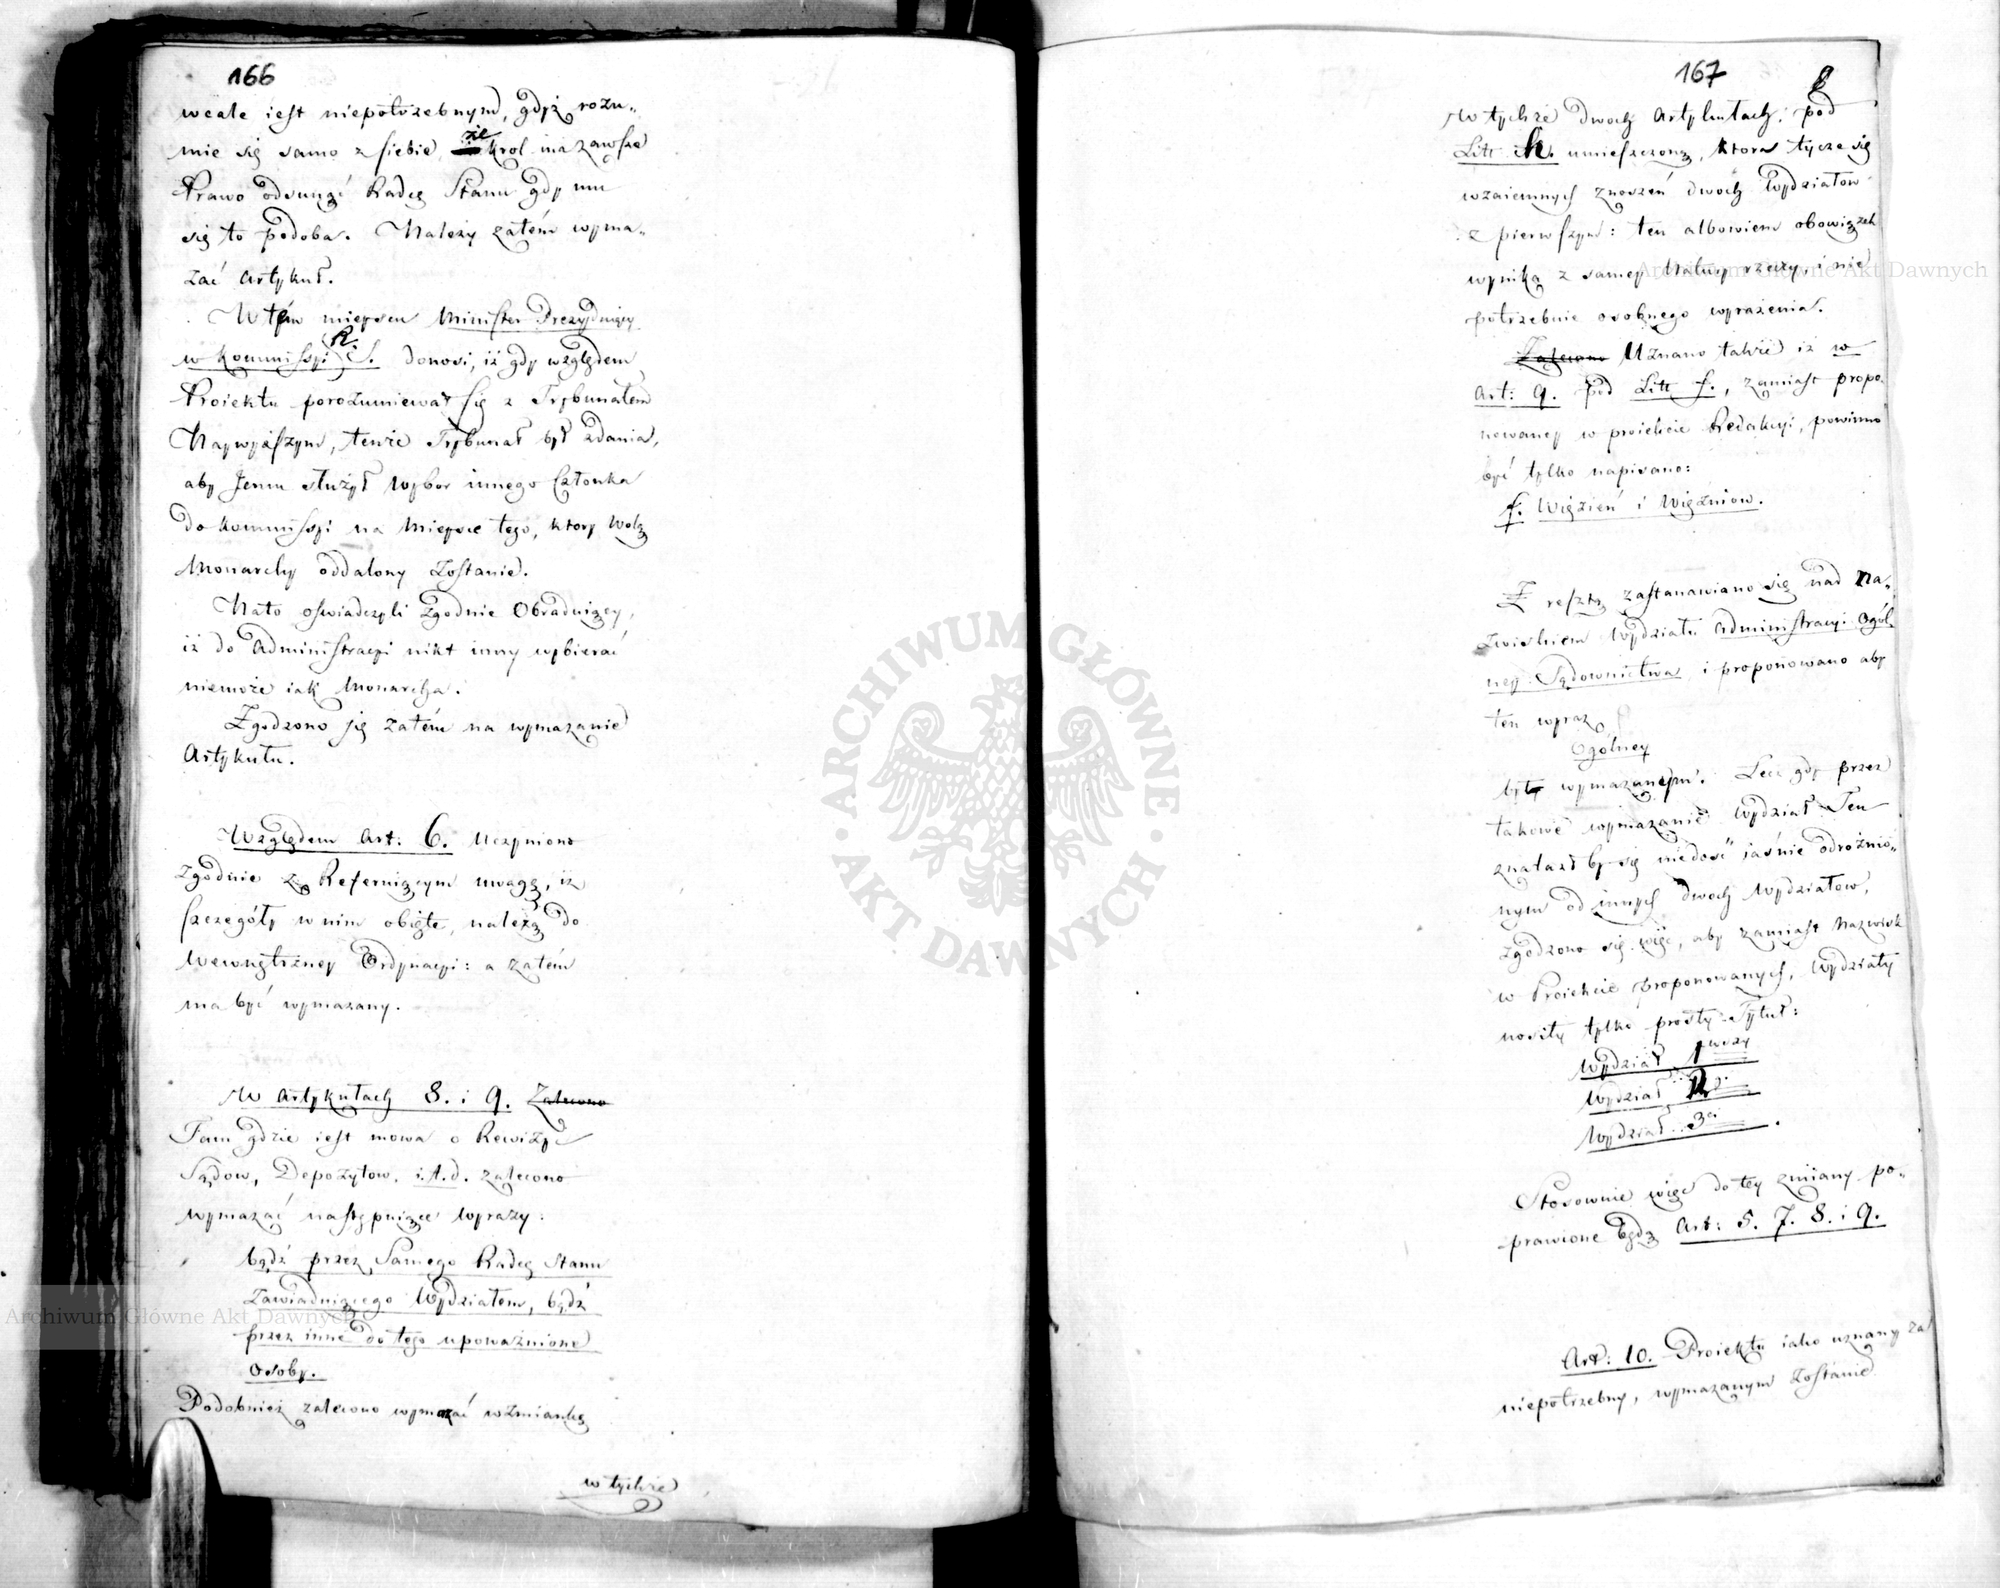 166
wcale iest niepotrzebnym, gdyż rozu„
mie się samo z siebie, że Krol ma zawsze
Prawo odsunąć Radcę Stanu gdy mu
się to podoba. Należy zatém wyma„
zać Artykuł.
W tém mieyscu Minister Prezyduiący
w Kommissyi R. S. donosi, iż gdy względem
Proiektu porozumiewał się z Trybunałem
Naywyższym, tenże Trybunał był zdania,
aby Jemu służył wybor innego Członka
do Kommissyi na Mieysce tego, ktory wolą
Monarchy oddalony zostanie.
Nato oświadczyli zgodnie Obraduiący,
iż do Administracyi nikt inny wybierać
niemoże iak Monarcha.
Zgodzono się zatém na wymazanie
Artykułu.
Względem Art: 6. Uczyniono
zgodnie z Referuiącym uwagę, iż
szczegóły w nim obięte, należą do
Wewnętrzney Ordynacyi: a zatém
ma być wymazany.
W Artykułach 8. i 9. Zalecono
Tam gdzie iest mowa o Rewizyi
Sądow, Depozytow, i.t.d. zalecono
wymazać następuiące wyrazy:
bądź przez Samego Radcę Stanu
Zawiaduiącego Wydziałem, bądź
przez inne do tego upoważnione
osoby.
Podobnież zalecono wymazać wzmiankę
w tychże
167
W tychże dwoch Artykułach, pod
Litt h. umieszczoną, ktora tycze się
wzaiemnych znoszeń dwoch Wydziałow
z pierwszym: ten albowiem obowiązek
wynika z samey Natury rzeczy, i nie
potrzebuie osobnego wyrażenia.
Zalecono Uznano także iż w
Art: 9. pod Litt f., zamiast propo„
nowaney w proiekcie Redakcyi, powinno
być tylko napisano:
f. Więzień i Więźniow.
Z resztą zastanawiano się nad Na„
zwiskiem Wydziału Administracyi Ogól„
ney Sądownictwa, i proponowano aby
ten wyraz
Ogólney
był wymazanym. Lecz gdy przez
takowe wymazanie Wydział Ten
znalazł by się niedosć iaśnie odrożnio„
nym od innych dwoch Wydziałow,
zgodzono się więc, aby zamiast Nazwisk
w Proiekcie proponowanych, Wydziały
nosiły tylko prosty Tytuł:
Wydział 1wszy
Wydział 2gi
Wydział 3ci.
Stosownie więc do tey zmiany po„
prawione będą Art: 5. 7. 8. i 9.
Art: 10. Proiektu iako uznany za
niepotrzebny, wymazanym zostanie.
ARCHIWUM GŁÓWNE AKT DAWNYCH
Archiwum Główne Akt Dawnych
Archiwum Główne Akt Dawnych